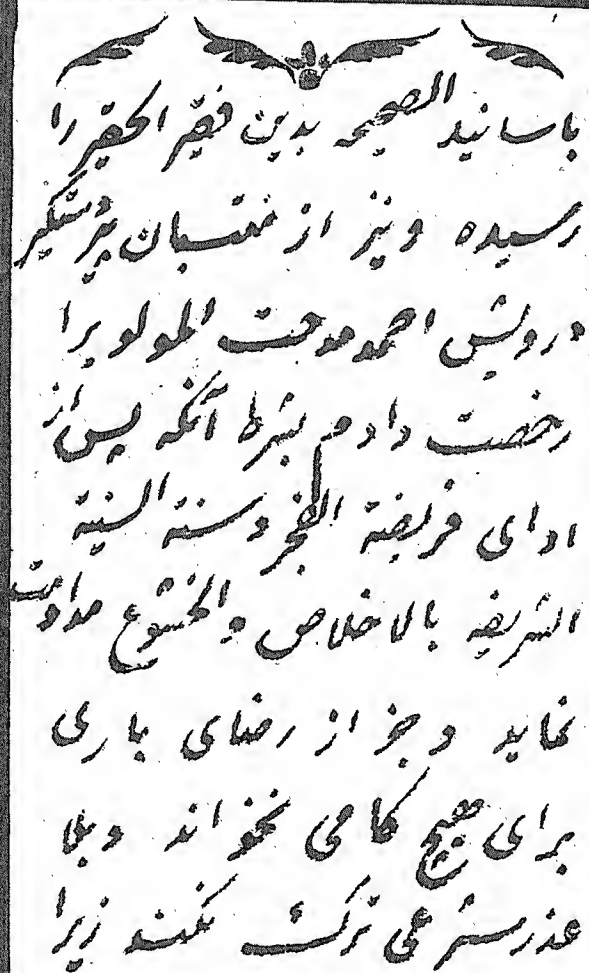 باسانید الصحیحه بدین فقیر الحقیر را
رسیده ونیز از منتسبان پیر دستکیر
درویش احمد مدحت المولویرا
رخصت دادم بشرط آنکه پس از
ادای فریضة الفجر وسنة السنیة
الشریفه بالاخلاص والخشوع مداومت
نماید وجز از رضای باری
برای هیچ کامی نخواند وبلا
عذر شرعی ترک نکند زیرا